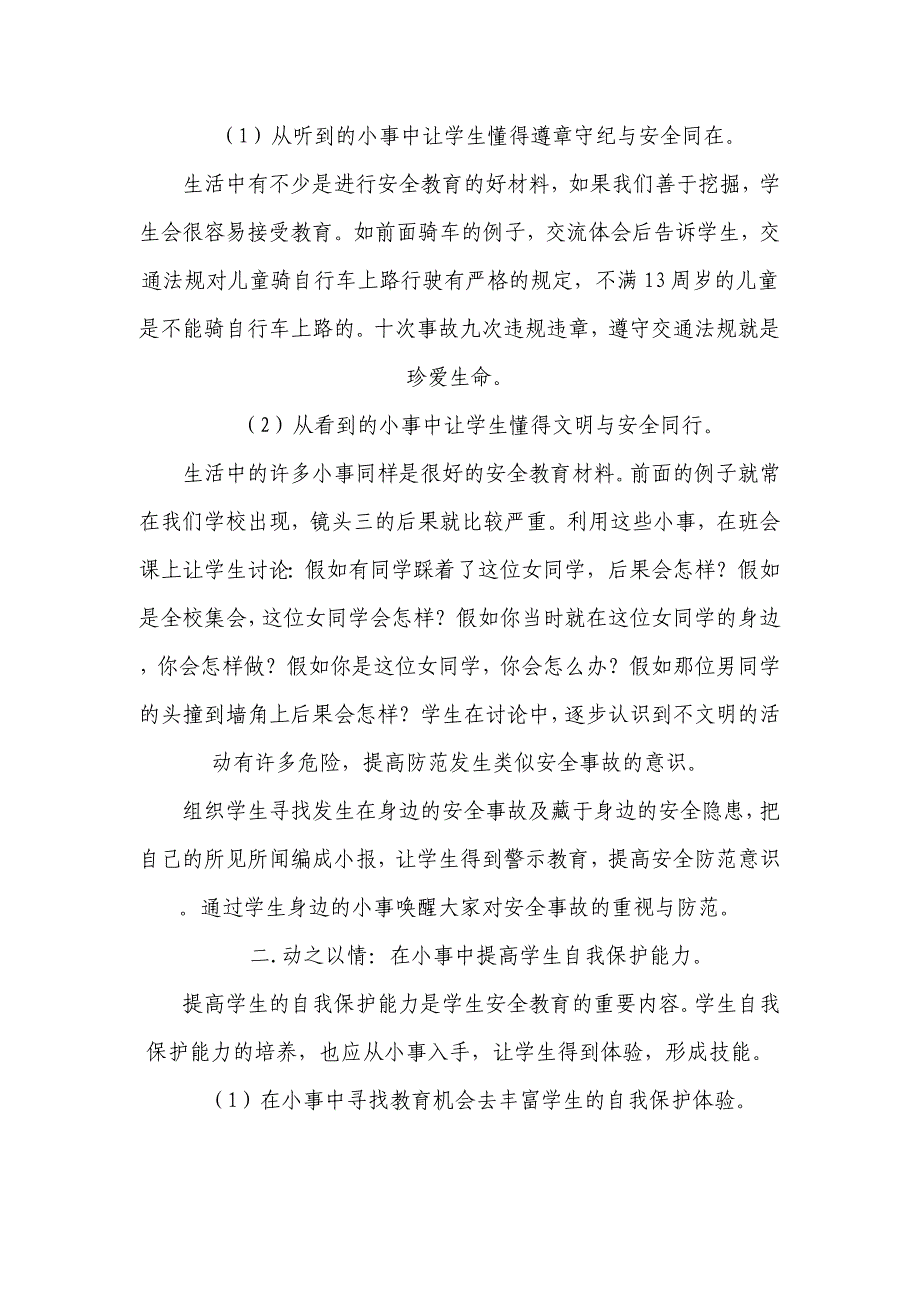 （1）从听到的小事中让学生懂得遵章守纪与安全同在。
生活中有不少是进行安全教育的好材料，如果我们善于挖掘，学
生会很容易接受教育。如前面骑车的例子，交流体会后告诉学生，交
通法规对儿童骑自行车上路行驶有严格的规定，不满 13 周岁的儿童
是不能骑自行车上路的。十次事故九次违规违章，遵守交通法规就是
珍爱生命。
（2）从看到的小事中让学生懂得文明与安全同行。
生活中的许多小事同样是很好的安全教育材料。前面的例子就常
在我们学校出现，镜头三的后果就比较严重。利用这些小事，在班会
课上让学生讨论：假如有同学踩着了这位女同学，后果会怎样？假如
是全校集会，这位女同学会怎样？假如你当时就在这位女同学的身边
，你会怎样做？假如你是这位女同学，你会怎么办？假如那位男同学
的头撞到墙角上后果会怎样？学生在讨论中，逐步认识到不文明的活
动有许多危险，提高防范发生类似安全事故的意识。
组织学生寻找发生在身边的安全事故及藏于身边的安全隐患，把
自己的所见所闻编成小报，让学生得到警示教育，提高安全防范意识
。通过学生身边的小事唤醒大家对安全事故的重视与防范。
二.动之以情：在小事中提高学生自我保护能力。
提高学生的自我保护能力是学生安全教育的重要内容。学生自我
保护能力的培养，也应从小事入手，让学生得到体验，形成技能。
（1）在小事中寻找教育机会去丰富学生的自我保护体验。